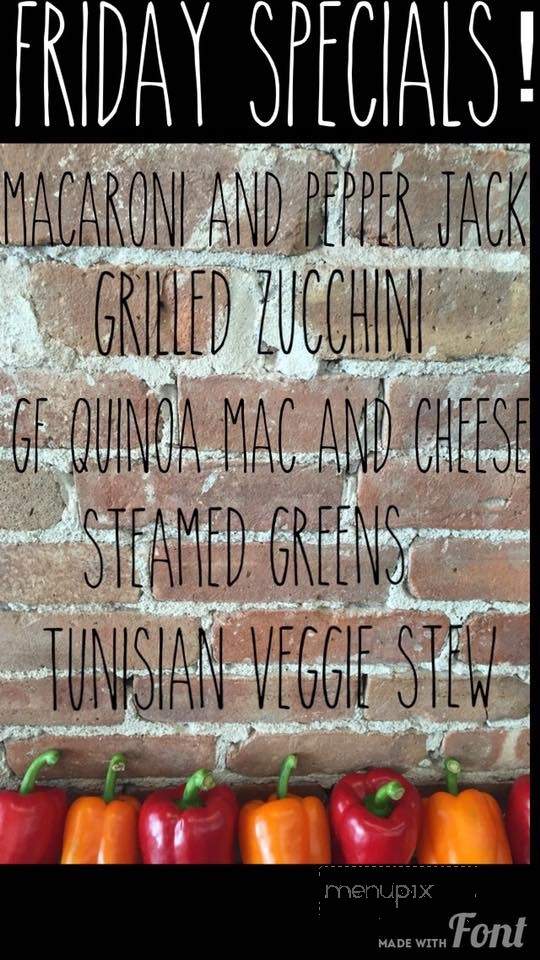 FRIDAY SPECIALS!
MACARONI AND PEPPER JACK
GRILLED ZUCCHINI
GF QUINOA MAC AND CHEESE
STEAMED GREENS
TUNISIAN VEGGIE STEW
menupix
MADE WITH Font